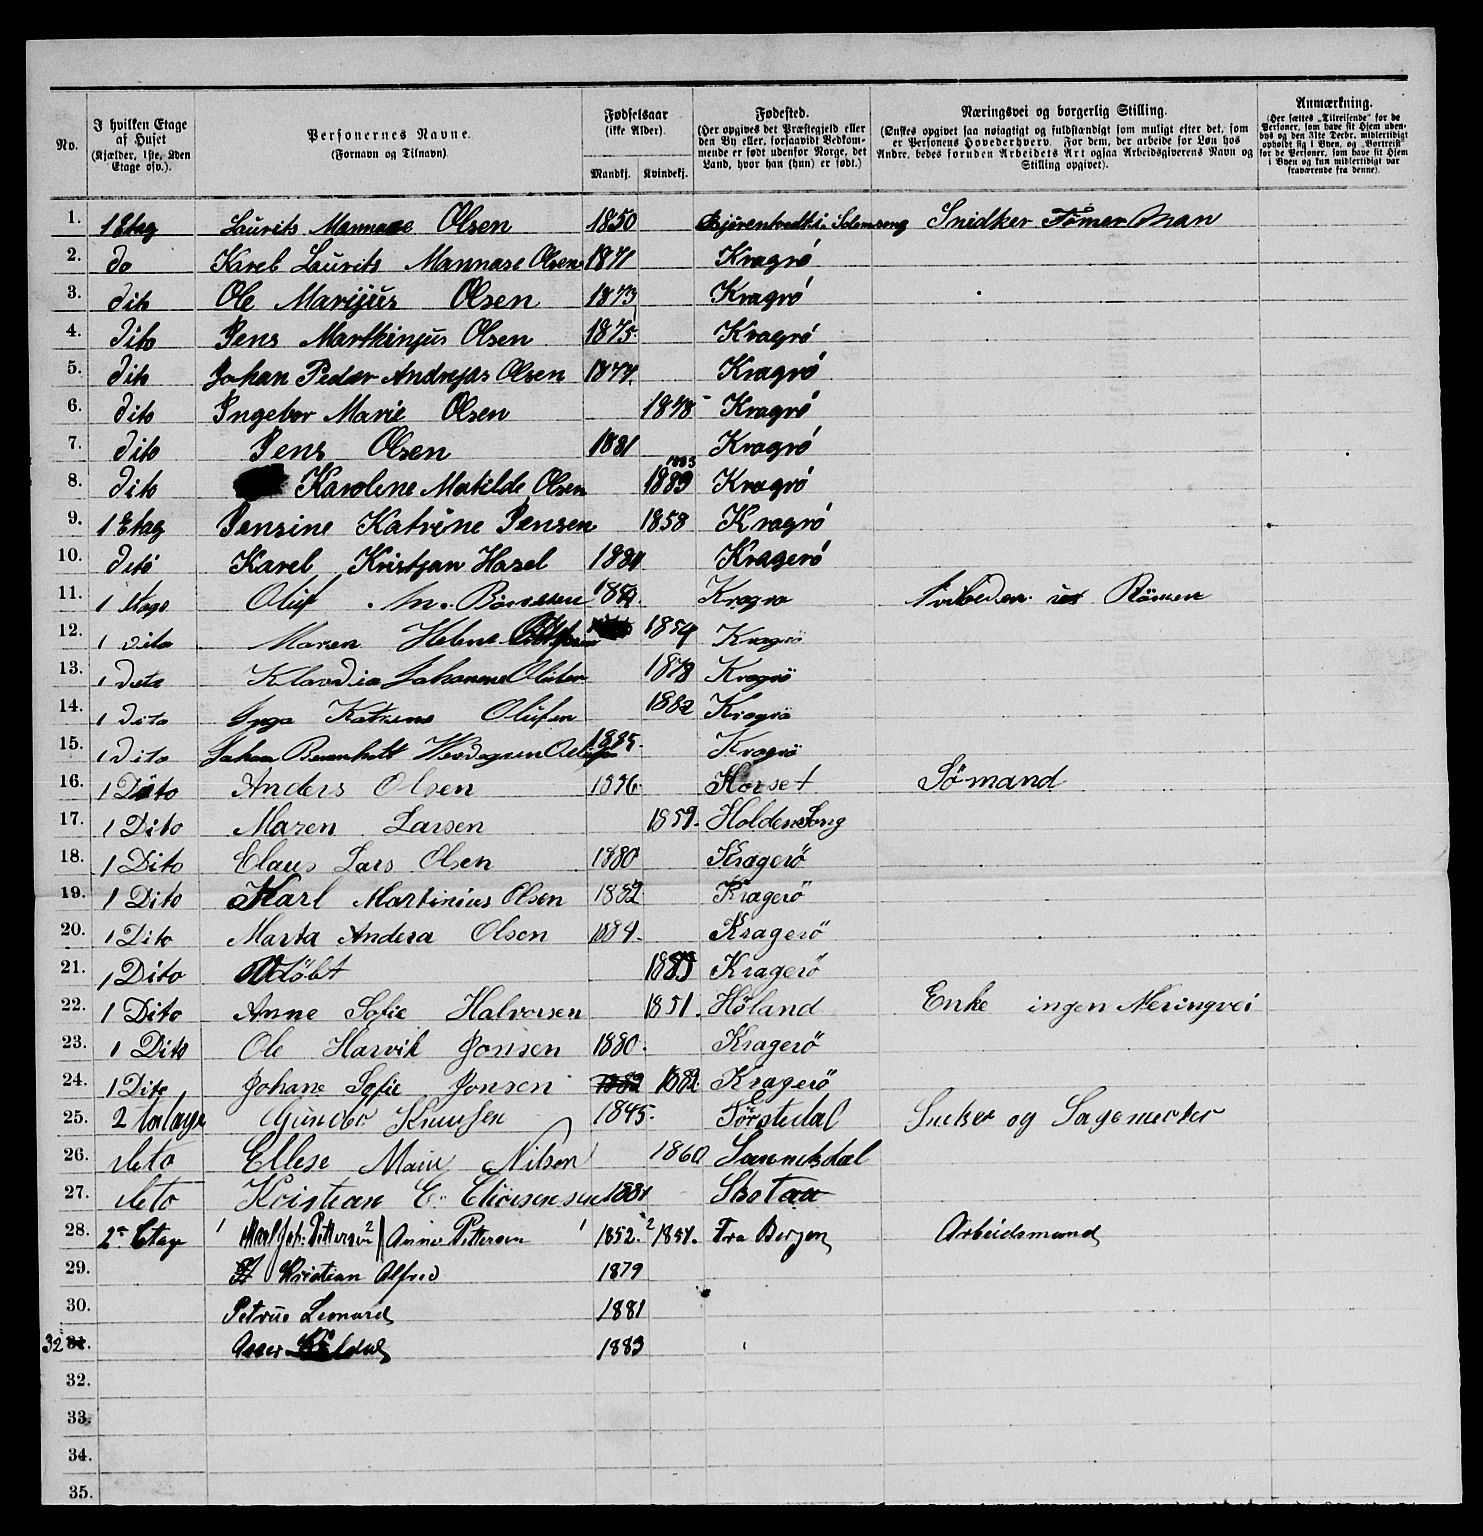 No.
I hvilken Etage af Huset (Kjælder, 1ste, 2den Etage osv.).
Personernes Navne. (Fornavn og Tilnavn)
Fødselsaar (ikke Alder). Mandkj. Kvindekj.
Fødested. (Her opgives det Præstegjeld eller den By eller, forsaavidt Vedkommende er født udenfor Norge, det Land, hvor han (hun) er født.)
Næringsvei og borgerlig Stilling. (Ønskes opgivet saa nøiagtigt og fuldstændigt som muligt efter det, som er Personens Hovederhverv. For dem, der arbeide for Løn hos Andre, bedes foruden Arbeidets Art ogsaa Arbeidsgiverens Navn og Stilling opgivet).
Anmærkning. (Her sættes „Tilreisende“ for de Personer, som have sit Hjem udenbys og den 31te Decbr. midlertidigt opholdt sig i Byen, og „Bortreist“ for de Personer, som have sit Hjem i Byen og kun midlertidigt var fraværende fra denne).
1. 1 Etag Laurits Mannase Olsen 1850 Snidker Tømer Man
2. do Karel Laurits Mannase Olsen 1871 Kragrö
3. dito Ole Marijus Olsen 1873 Kragrö
4. Dito Jens Marthinjus Olsen 1875 Kragrö
5. Dito Johan Pedar Andrejas Olsen 1877 Kragrö
6. Dito Ingebor Marie Olsen 1878 Kragrö
7. Dito Jens Olsen 1881 Kragrö
8. Dito Karoline Matilde Olsen 1883 1883 Kragrö
9. 1 Etag Jensine Katrine Jensen 1858 Kragrö
10. Dito Karel Kristjan Hasel 188 Kragerö
11. 1 Etage Oluf Kragrø
12. 1 Dito Maren Helene 1854 Kragrö
13. 1 Dito Klavdia Johanne 1878 Kragrö
14. 1 Dito Inga Katrine Olufsen 1882 Kragrö
15. 1 Dito Johan 1885. Kragrö
16. 1 Dito Anders Olsen Korset Sömand
17. 1 Dito Maren Larsen 1859. Holden Song
18. 1 Dito Claus Lars Olsen 1880 Kragerö
19. 1 Dito Karl Martinius Olsen 1882 Kragerö
20. 1 Dito Marta Andera Olsen 1884. Kragerö
21. 1 Dito Udöbt 1885 Kragerö
22. 1 Dito Anne Sofie Halvorsen 1851. Höland Enke ingen Neringvei
23. 1 Dito Ole Harvik Jonsen 1880. Kragerö
24. 1 Dito Johane Sofie Jonsen 1882 1882 Kragerö
25. 2 Gundbo Knutsen 1845. Törstedal og Sagemester
26. deto Ellese Marie Nilsen 1860 Sannikdal
27. deto Kristian E. 1881 Skotaa
28. 2n Etage 1 Joh. Pettersen 2 Anne Pettersen 1 1852. 2 1857. Fra Bergen Arbeidsmand
29. Kristian Alfred 1879
30. Petrus Leonard 1881
32 31. 1883
32.
33.
34.
35.